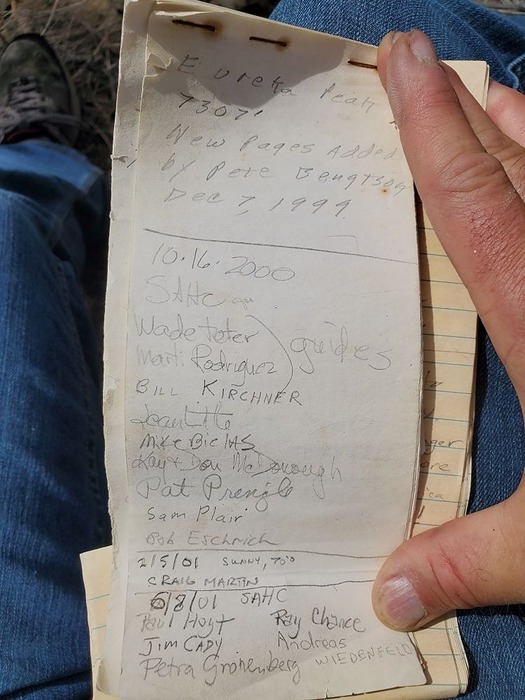 Eureka Peak
7307'
New Pages Added
by Pete Bengtson
Dec 7, 1999
10.16.2000
SAHC
Wade
guides
Mart. Rodriguez
BILL KIRCHNER
Jean
Mike
Kay + Don McDonough
Pat Prengle
Sam Plair
Bob Eschrich
2/5/01 SUNNY, 70°
CRAIG MARTIN
6/8/01 SAHC
Paul Hoyt Ray Chance
JIM CADY Andreas
Petra Gronenberg WIEDENFELD
ger
ere